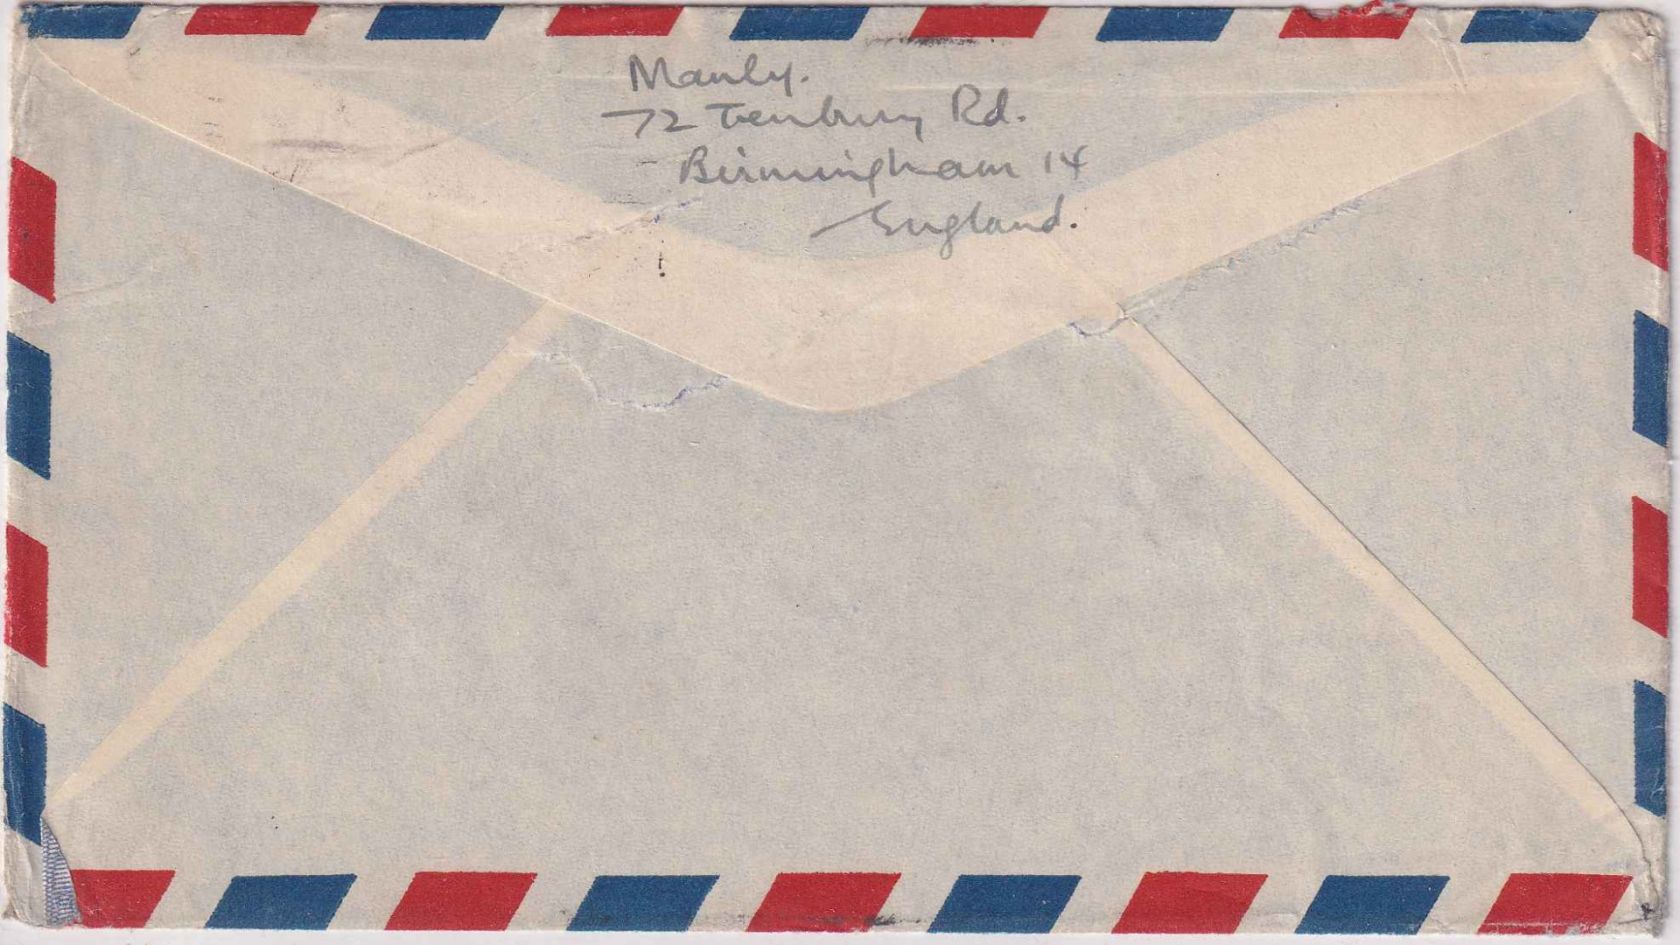 Manly.
72 Tenbury Rd.
Birmingham 14
England.